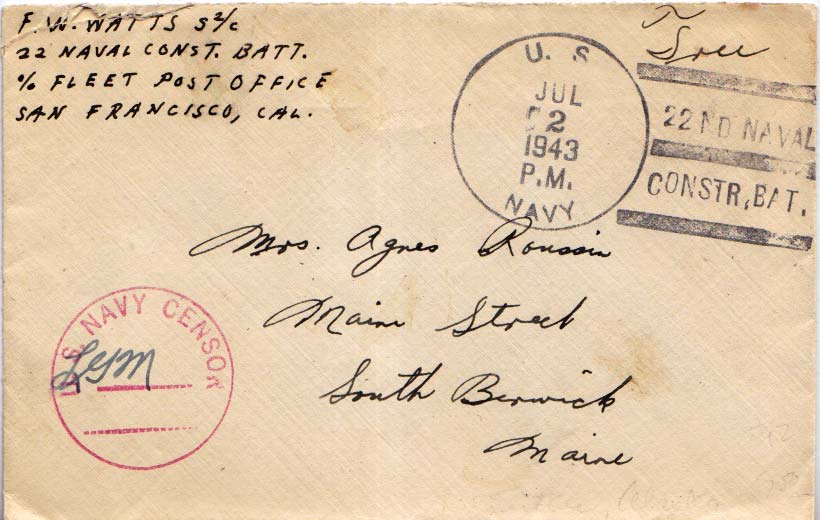 F. W. WATTS S 2/c
22 NAVAL CONST. BATT.
% FLEET POST OFFICE
SAN FRANCISCO, CAL.
Free
U. S.
JUL
2
1943
P.M.
NAVY
22ND NAVAL
CONSTR, BAT.
Mrs. Agnes Roussin
Maine Street
South Berwick
Maine
U.S. NAVY CENSOR